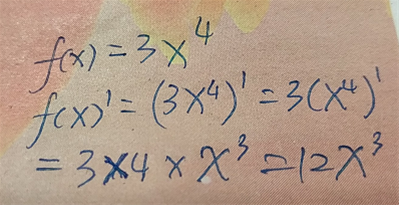 f(x) = 3x⁴
f(x)' = (3x⁴)' = 3(x⁴)'
= 3×4 × x³ = 12x³